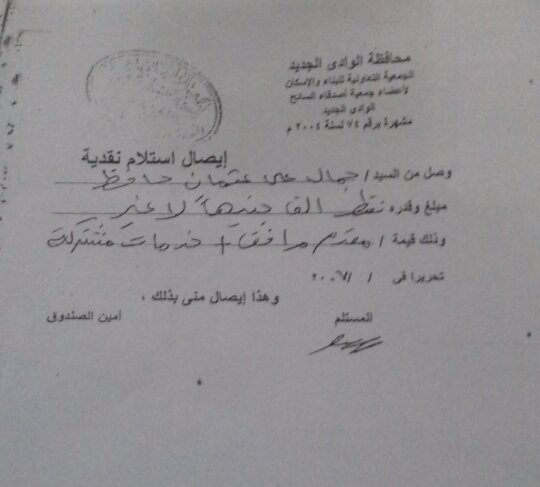 محافظة الوادى الجديد
الجمعية التعاونية للبناء والإسكان
لأعضاء جمعية أصدقاء السائح
الوادى الجديد
مشهرة برقم ٧٤ لسنة ٢٠٠٤ م
إيصال استلام نقدية
وصل من السيد / جمال على عثمان حافظ
مبلغ وقدره فقط الف جنيهاً لا غير
وذلك قيمة / مقدم مرافق + خدمات مشتركة
تحريرا فى / / ٢٠٠٧
وهذا إيصال منى بذلك ،
المستلم
أمين الصندوق